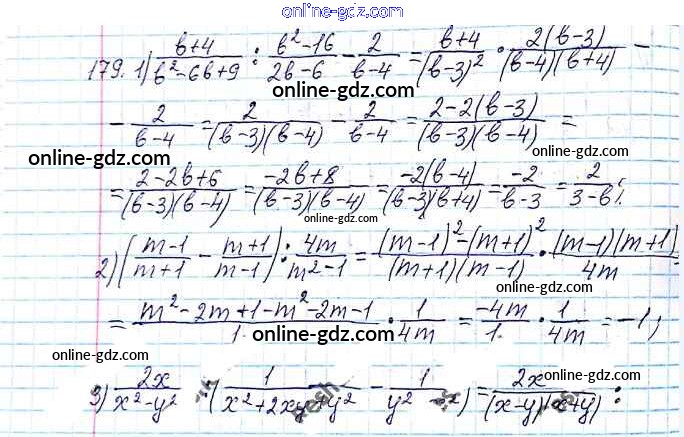 online-gdz.com
179. 1) (b+4)/(b²-6b+9) : (b²-16)/(2b-6) - 2/(b-4) = (b+4)/(b-3)² · 2(b-3)/((b-4)(b+4)) -
online-gdz.com
- 2/(b-4) = 2/((b-3)(b-4)) - 2/(b-4) = (2-2(b-3))/((b-3)(b-4)) =
online-gdz.com
online-gdz.com
= (2-2b+6)/((b-3)(b-4)) = (-2b+8)/((b-3)(b-4)) = (-2(b-4))/((b-3)(b+4)) = -2/(b-3) = 2/(3-b);
online-gdz.com
online-gdz.com
2) ((m-1)/(m+1) - (m+1)/(m-1)) : 4m/(m²-1) = ((m-1)²-(m+1)²)/((m+1)(m-1)) · ((m-1)(m+1))/4m =
= (m²-2m+1-m²-2m-1)/1 · 1/4m = -4m/1 · 1/4m = -1;
online-gdz.com
online-gdz.com
online-gdz.com
3) 2x/(x²-y²) : (1/(x²+2xy+y²) - 1/(y²-x²)) = 2x/((x-y)(x+y)) :